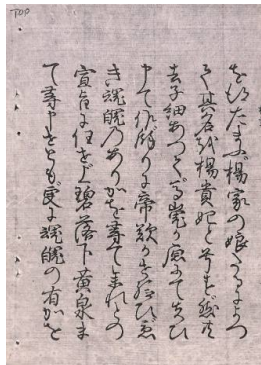 を得たまふ楊家の娘たるによつ
て其名を楊貴妃と号す然共
去子細あつて馬嵬か原にて失ひ
申て候餘りに帝歎かせ給ひ急
き魂魄のありかを尋て参れとの
宣旨に任せ上碧落下黄泉ま
て尋申せとも更に魂魄の有かを